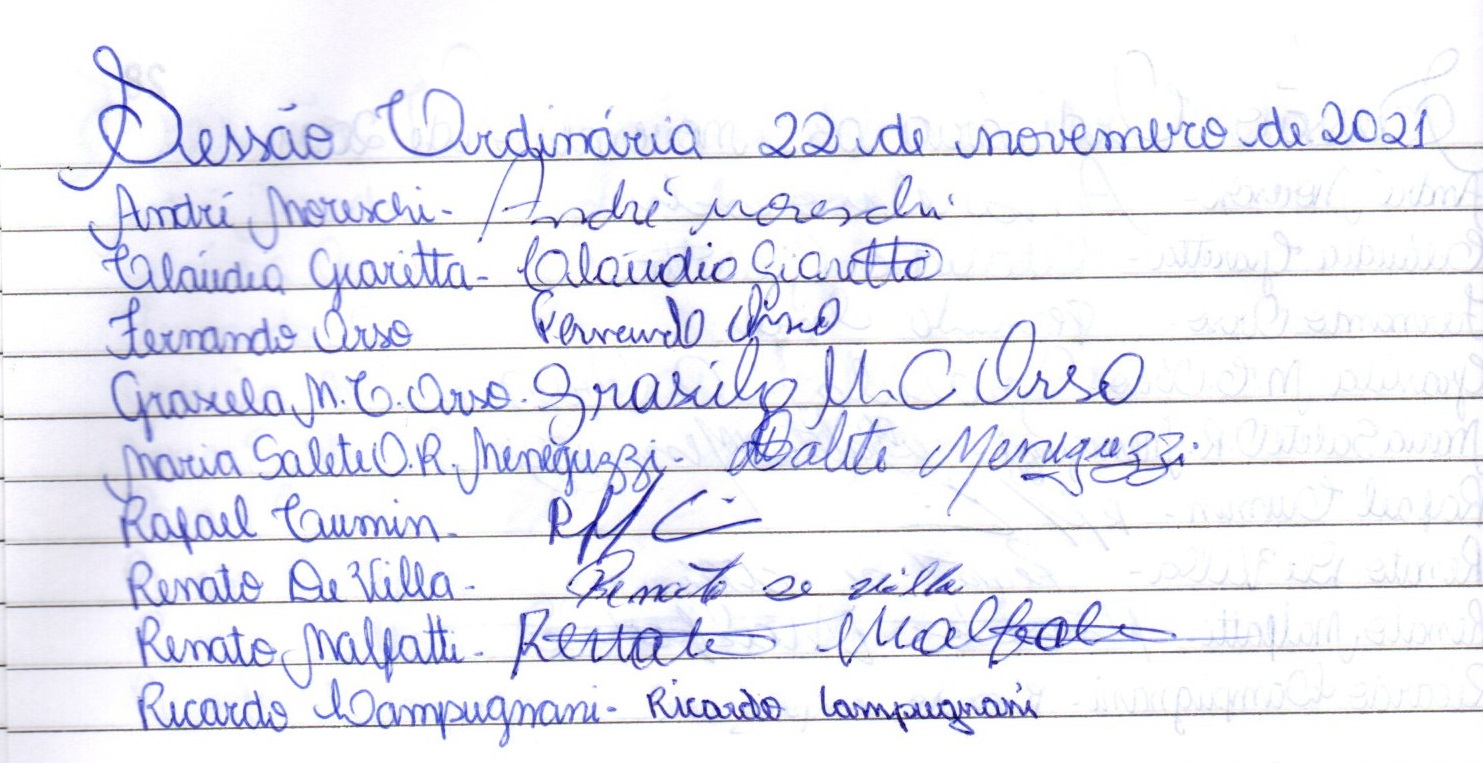 Sessão Ordinária 22 de novembro de 2021
André Moreschi - André Moreschi
Claudio Giaretta - Claudio Giaretta
Fernando Orso Fernando Orso
Graxiela M. C. Orso - Grasiela M. C Orso
Maria Salete O. R. Meneguzzi - Salete Meneguzzi
Rafael Cumin -
Renato De Villa - Renato De Villa
Renato Malfatti - Renato Malfatti
Ricardo Campugnani - Ricardo Campugnani